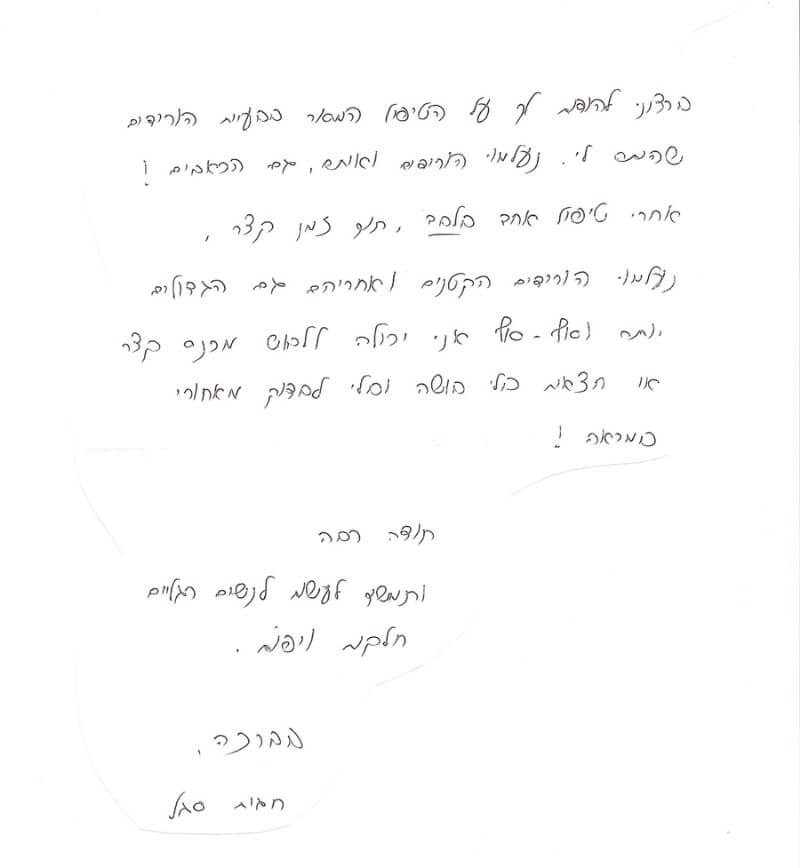 ברצוני להודות לך על הטיפול המסור בבעיית הורידים
שהיתה לי. נעלמו הורידים ואיתם, גם הכאבים!
אחרי טיפול אחד בלבד, תוך זמן קצר,
נעלמו הורידים הקטנים ואחריהם גם הגדולים
יותר וסוף-סוף אני יכולה ללבוש מכנס קצר
או חצאית בלי בושה ובלי לבדוק מאחורי
במראה!
תודה רבה
ותמשיך לעשות לנשים רגליים
חלקות ויפות.
בברכה,
חגית סגל